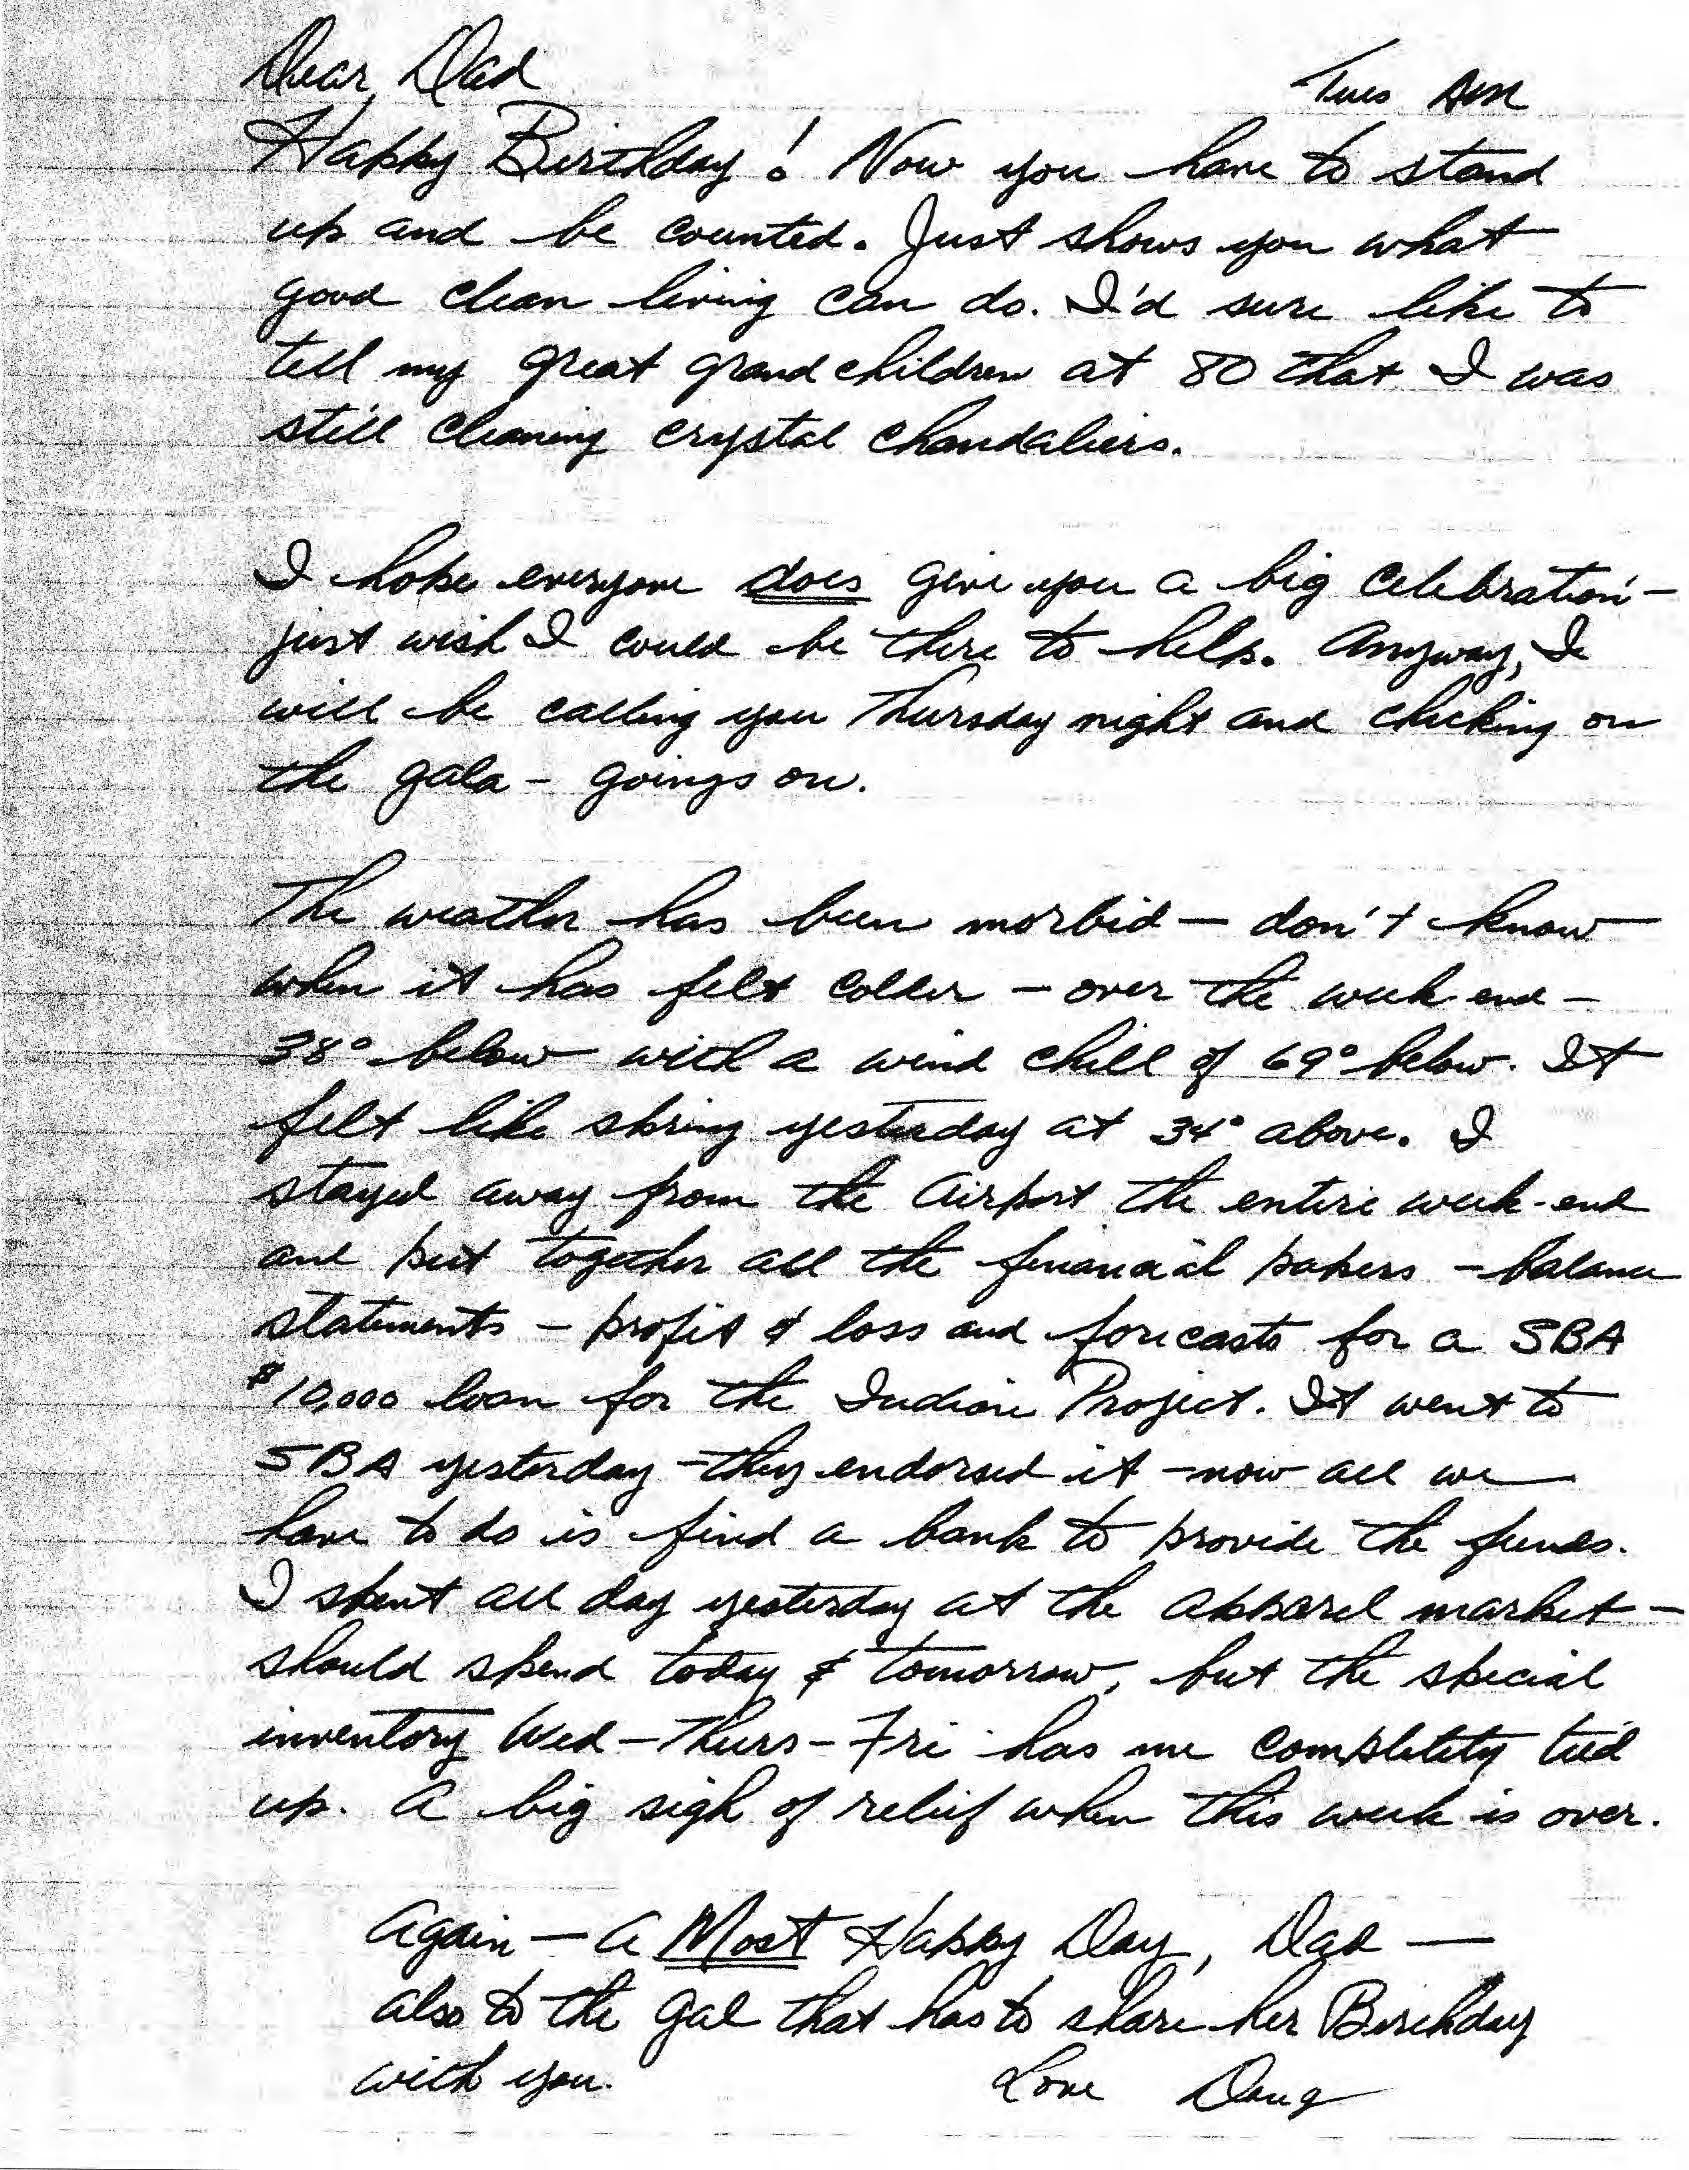 Dear Dad
Tues AM
Happy Birthday! Now you have to stand
up and be counted. Just shows you what
good clean living can do. I'd sure like to
tell my great grandchildren at 80 that I was
still cleaning crystal chandaliers.
I hope everyone does give you a big celebration -
just wish I could be there to help. Anyway, I
will be calling you Thursday night and checking on
the gala - goings on.
The weather has been morbid - don't know
when it has felt colder - over the week end -
38° below with a wind chill of 69° below. It
felt like spring yesterday at 34° above. I
stayed away from the Airport the entire week-end
and put together all the financial papers - balance
statements - profit & loss and forecasts for a SBA
$10,000 loan for the Indian Project. It went to
SBA yesterday - they endorsed it - now all we
have to do is find a bank to provide the funds.
I spent all day yesterday at the apparel market -
should spend today & tomorrow, but the special
inventory Wed - Thurs - Fri has me completely tied
up. A big sigh of relief when this week is over.
Again - a Most Happy Day, Dad -
also to the gal that has to share her Birthday
with you.
Love Doug